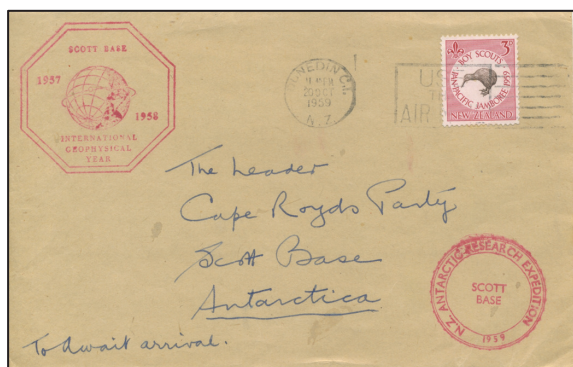 SCOTT BASE
1957
1958
INTERNATIONAL
GEOPHYSICAL
YEAR
DUNEDIN C1.
20 OCT
1959
N.Z.
AIR
3D
BOY SCOUTS
PAN-PACIFIC JAMBOREE 1959
NEW ZEALAND
The Leader
Cape Royds Party
Scott Base
Antarctica
To await arrival.
N.Z. ANTARCTIC RESEARCH EXPEDITION
SCOTT
BASE
1959